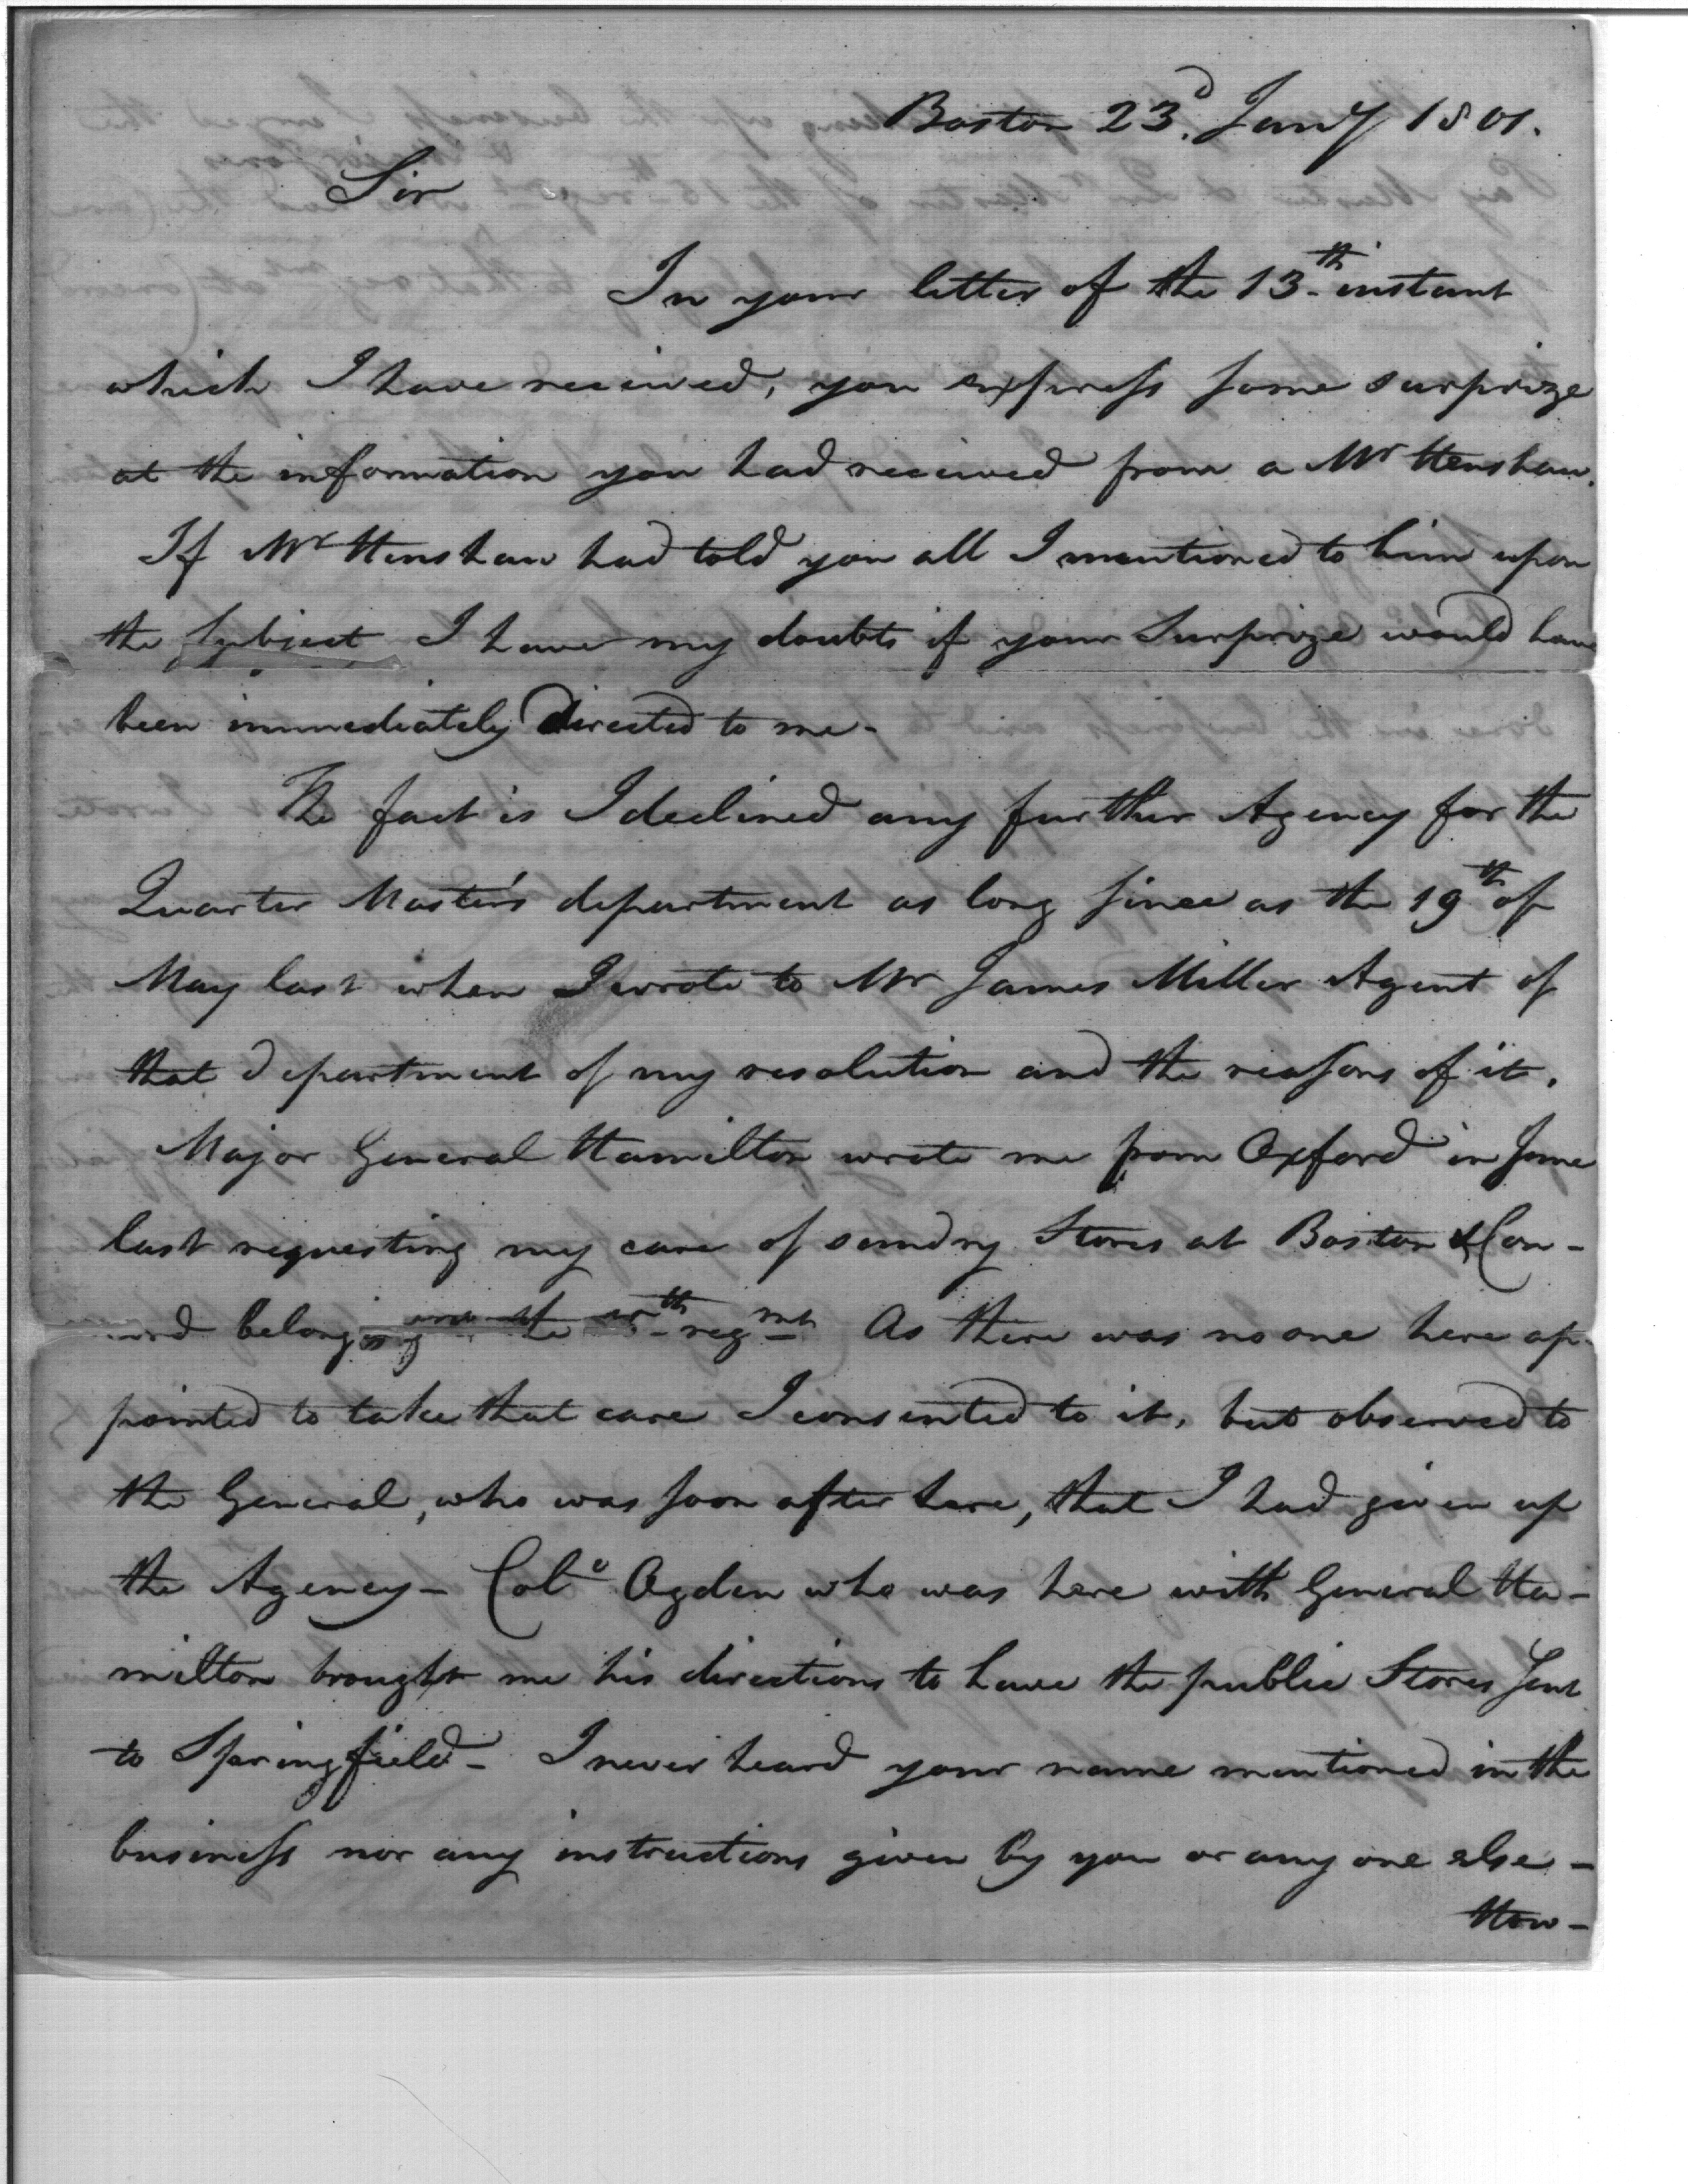 Boston 23d. Jany 1801.
Sir
In your letter of the 13th instant
which I have received, you express some surprize
at the information you had received from a Mr Henshaw.
If Mr Henshaw had told you all I mentioned to him upon
the subject I have my doubts if your Surprize would have
been immediately directed to me-
The fact is I declined any further Agency for the
Quarter Master's department as long since as the 19th of
May last when I wrote to Mr James Miller Agent of
that department of my resolution and the reasons of it.
Major General Hamilton wrote me from Oxford in June
last requesting my care of sundry Stores at Boston &
belonging regmt As there was no one here ap-
pointed to take that care I consented to it, but observed to
the General, who was soon after here, that I had given up
the Agency- Colo Ogden who was here with General Ha-
milton brought me his directions to have the public Stores sent
to Springfield- I never heard your name mentioned in the
business nor any instructions given by you or any one else-
How-